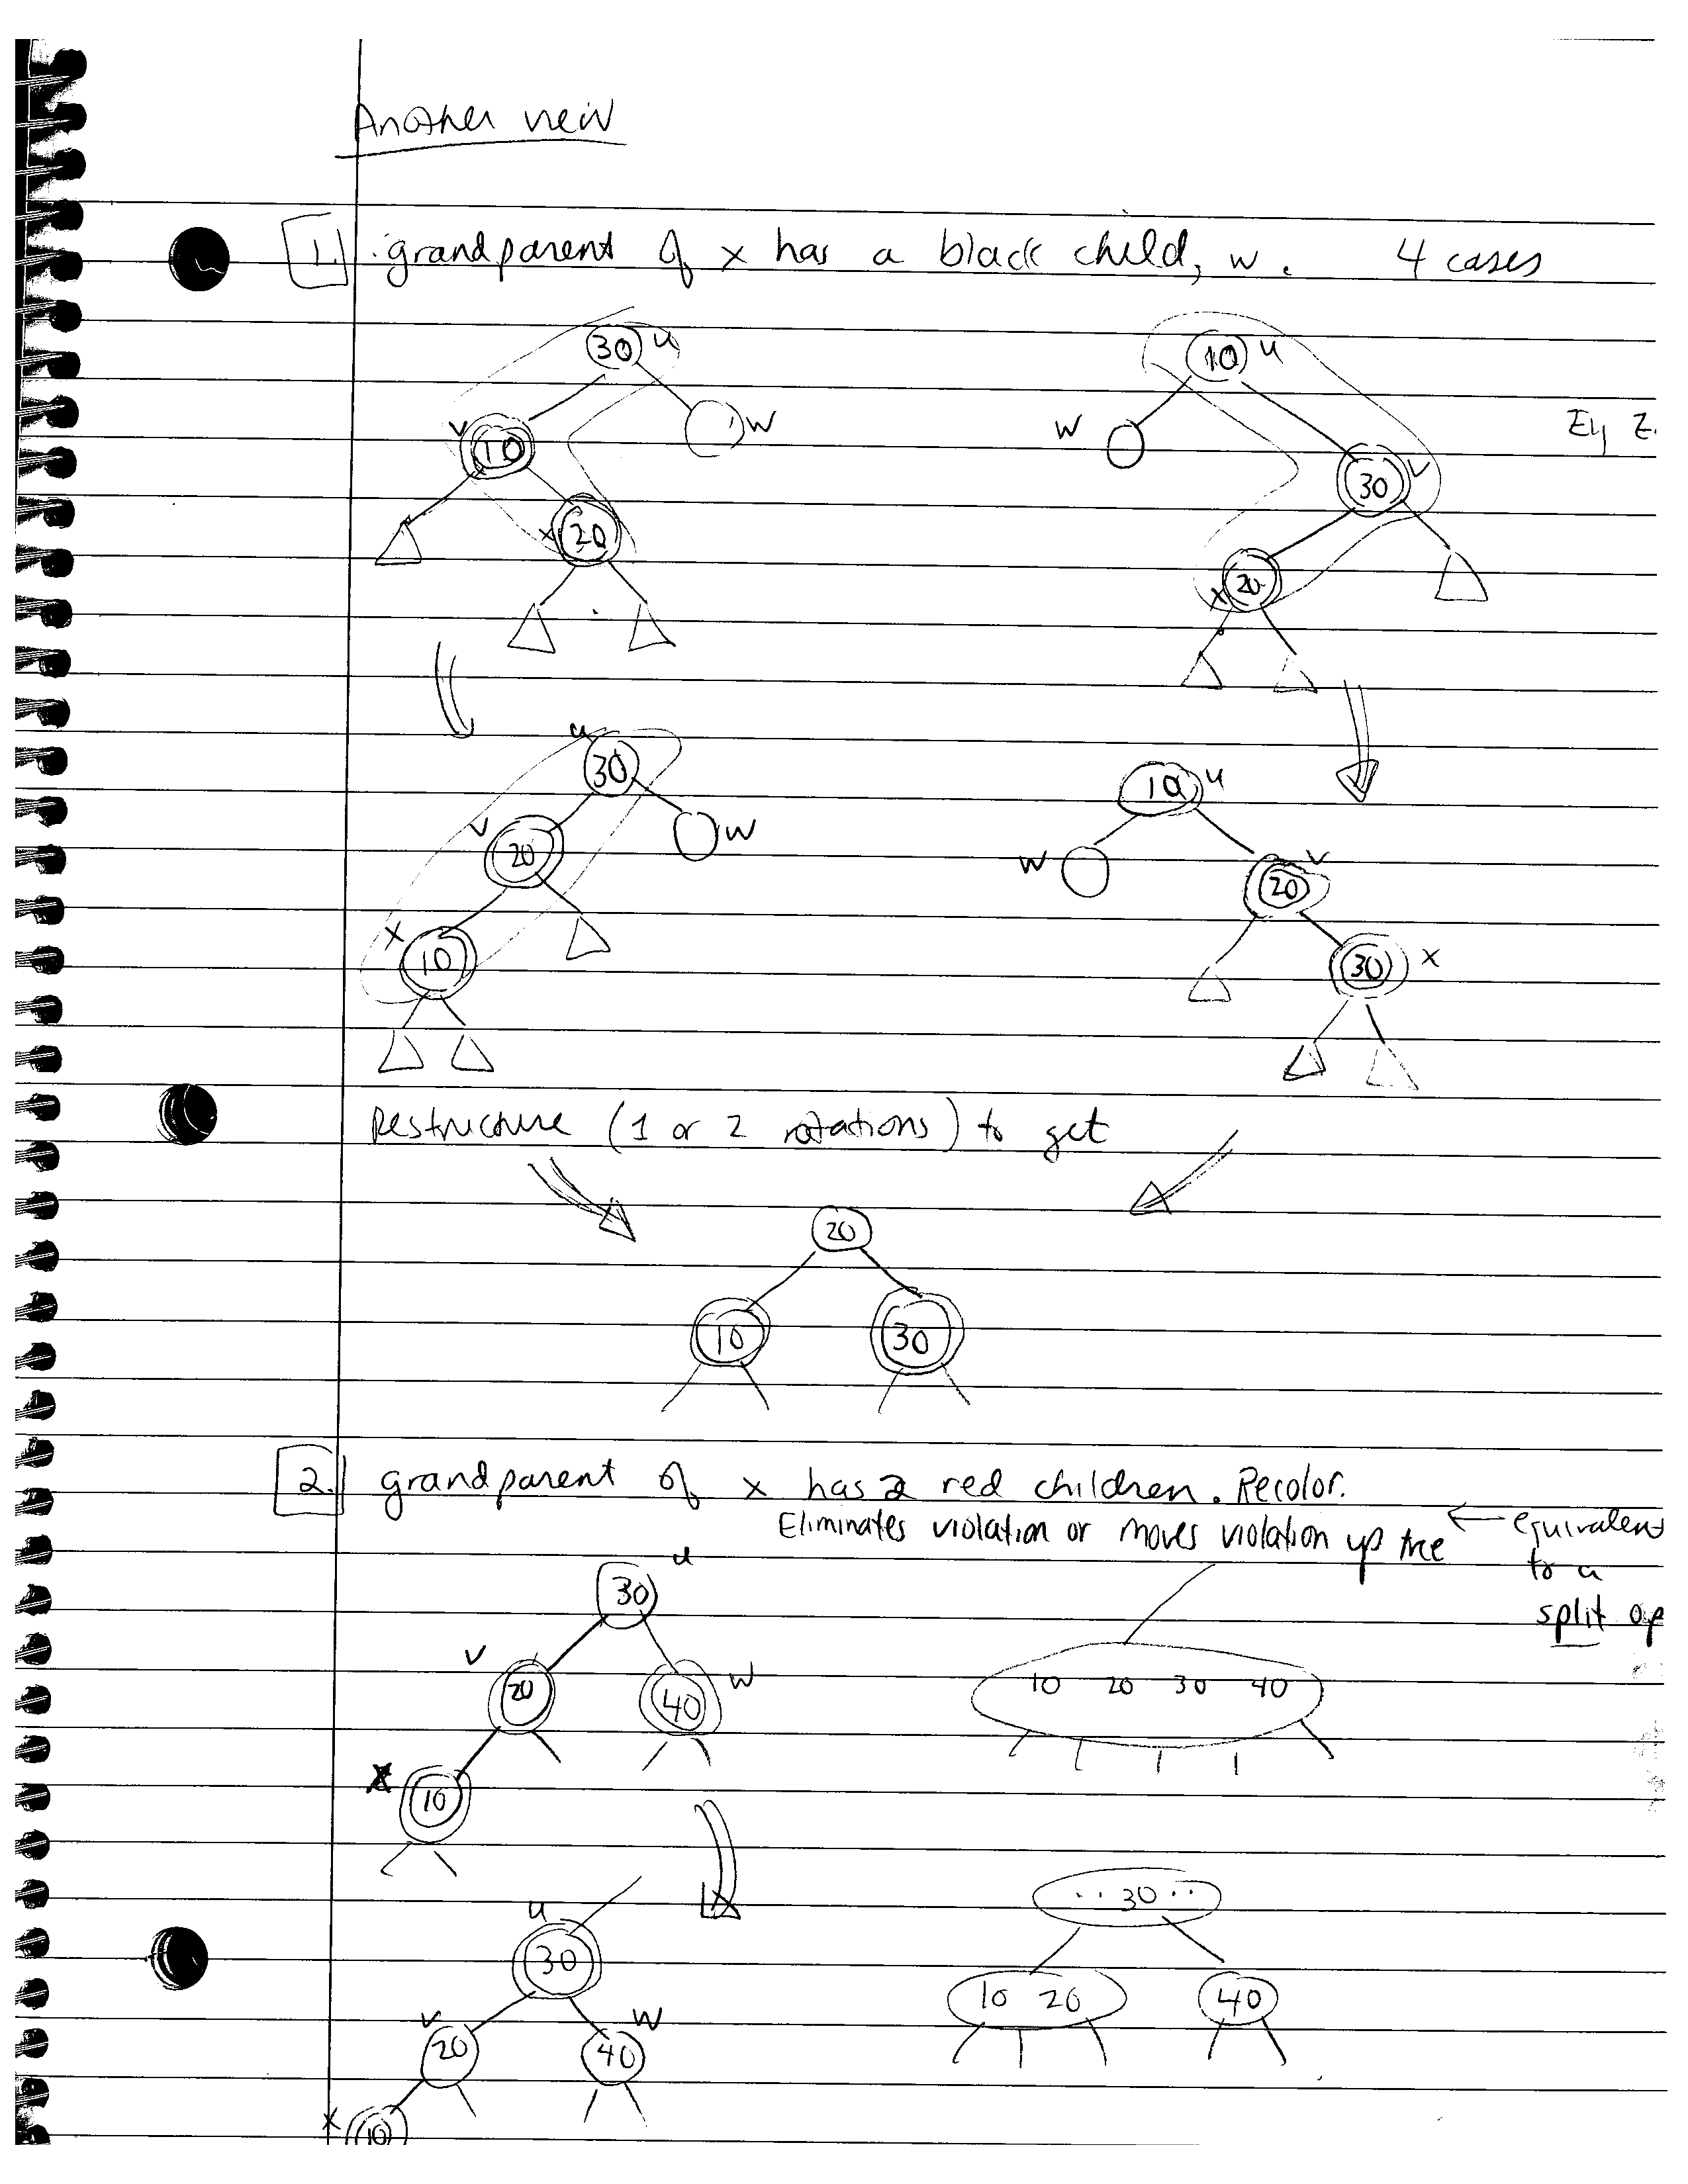 Another view
1. grandparent of x has a black child, w. 4 cases
30 u
10 u
v 10
w
w
30 v
x 20
x 20
u
30
10 u
v 20
w
w
v
20
x 10
30 x
Restructure (1 or 2 rotations) to get
20
10 30
2. grandparent of x has 2 red children. Recolor.
Eliminates violation or moves violation up tree ← equivalent
to a
split op
u
30
v 20
40 w
10 20 30 40
x 10
u
30
·· 30 ··
v 20
w 40
10 20
40
x 10